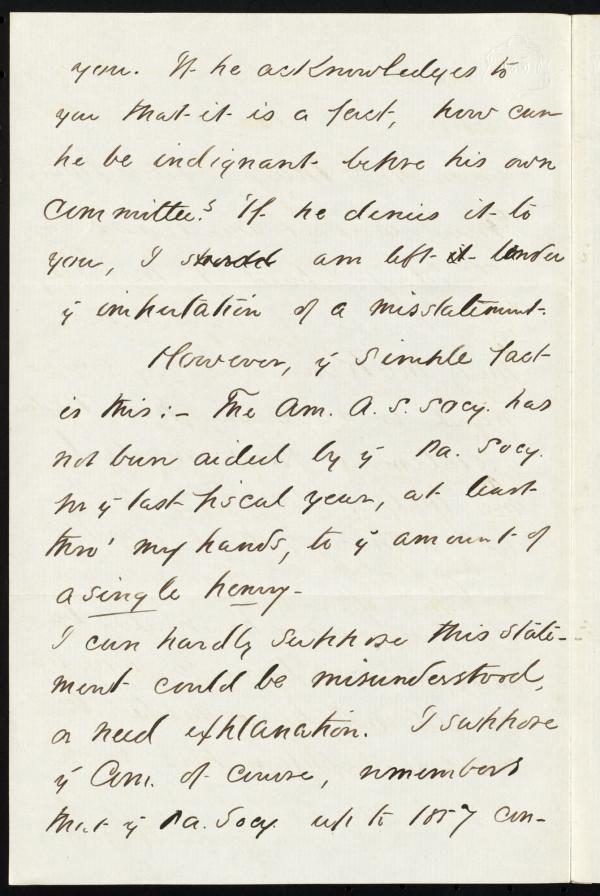 you. If he acknowledges to
you that it is a fact, how can
he be indignant before his own
Committee? If he denies it to
you, I am left under
ye imputation of a misstatement.
However, ye simple fact
is this:- The Am. A. S. Socy. has
not been aided by ye Pa. Socy.
for ye last fiscal year, at least
thro' my hands, to ye amount of
a single penny-
I can hardly suppose this state-
ment could be misunderstood,
or need explanation. I suppose
ye Com. of course, remembers
that ye Pa. Socy. up to 1857 con-